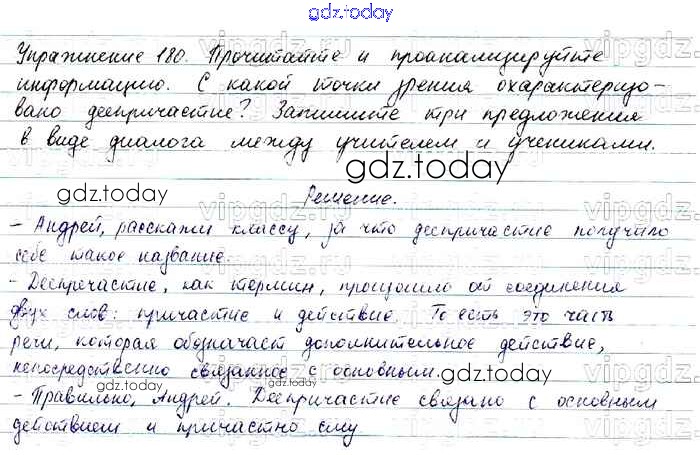 gdz.today
Упражнение 180. Прочитайте и проанализируйте
информацию. С какой точки зрения охарактеризо-
вано деепричастие? Запишите три предложения
в виде диалога между учителем и учениками.
gdz.today
gdz.today
Решение.
- Андрей, расскажи классу, за что деепричастие получило
себе такое название.
- Деепричастие, как термин, произошло от соединения
двух слов: причастие и действие. То есть это часть
речи, которая обозначает дополнительное действие,
непосредственно связанное с основным.
gdz.today
- Правильно, Андрей. Деепричастие связано с основным
действием и причастно ему
gdz.today